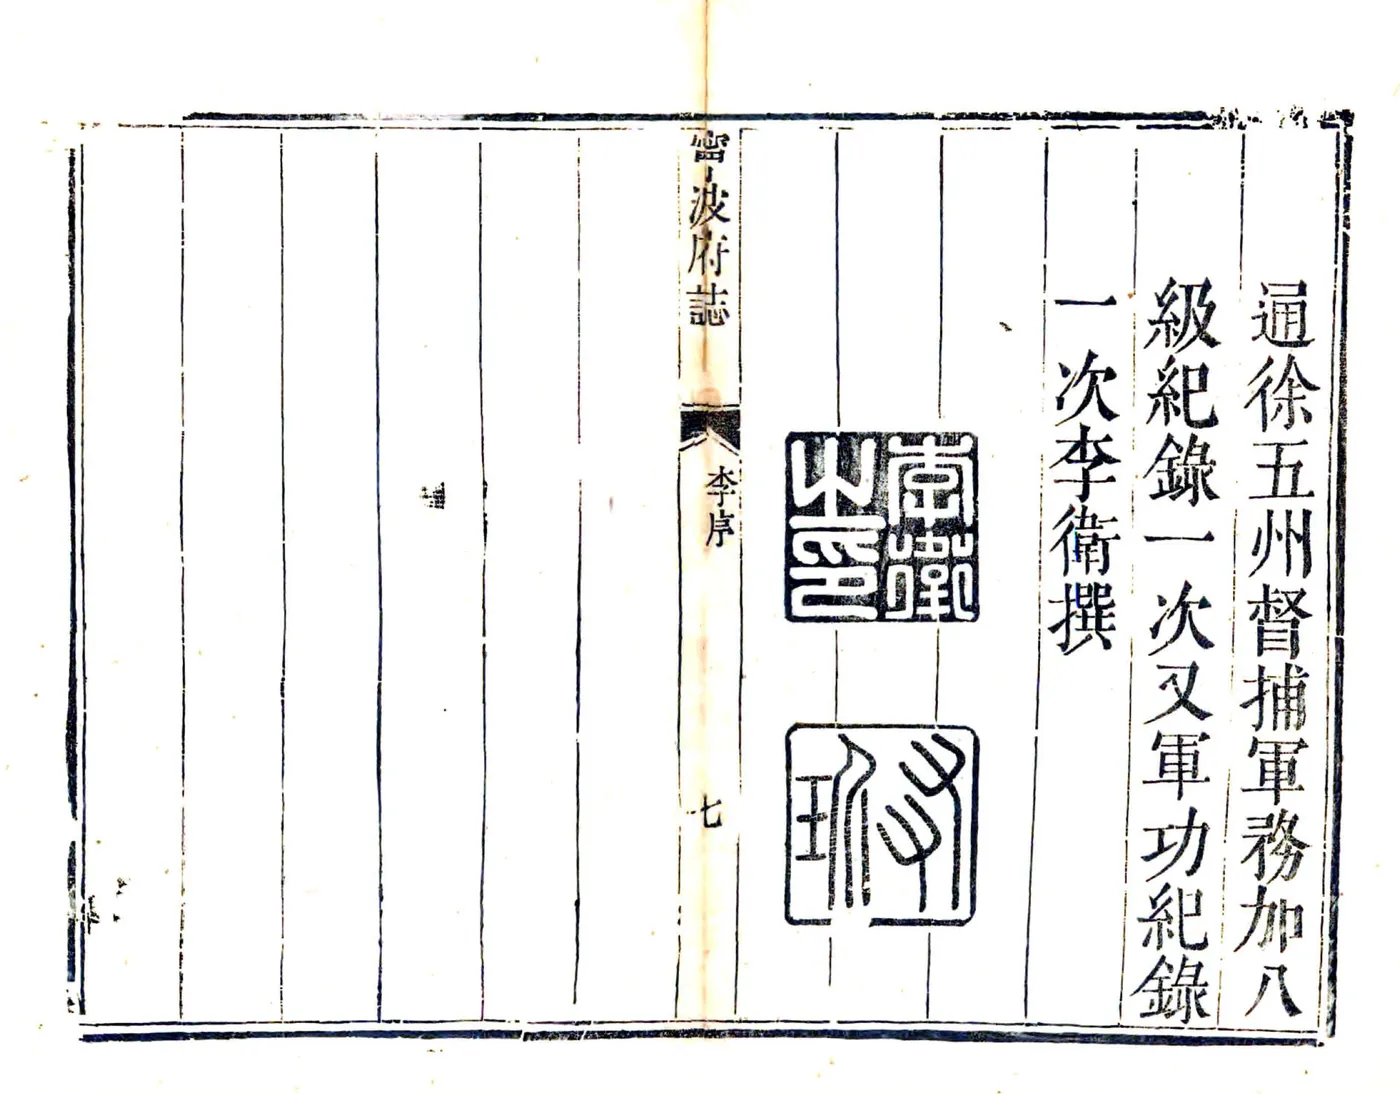 通徐五州督捕軍務加八
級紀錄一次又軍功紀錄
一次李衛撰
李衛之印
又玠
寧波府誌
李序
七